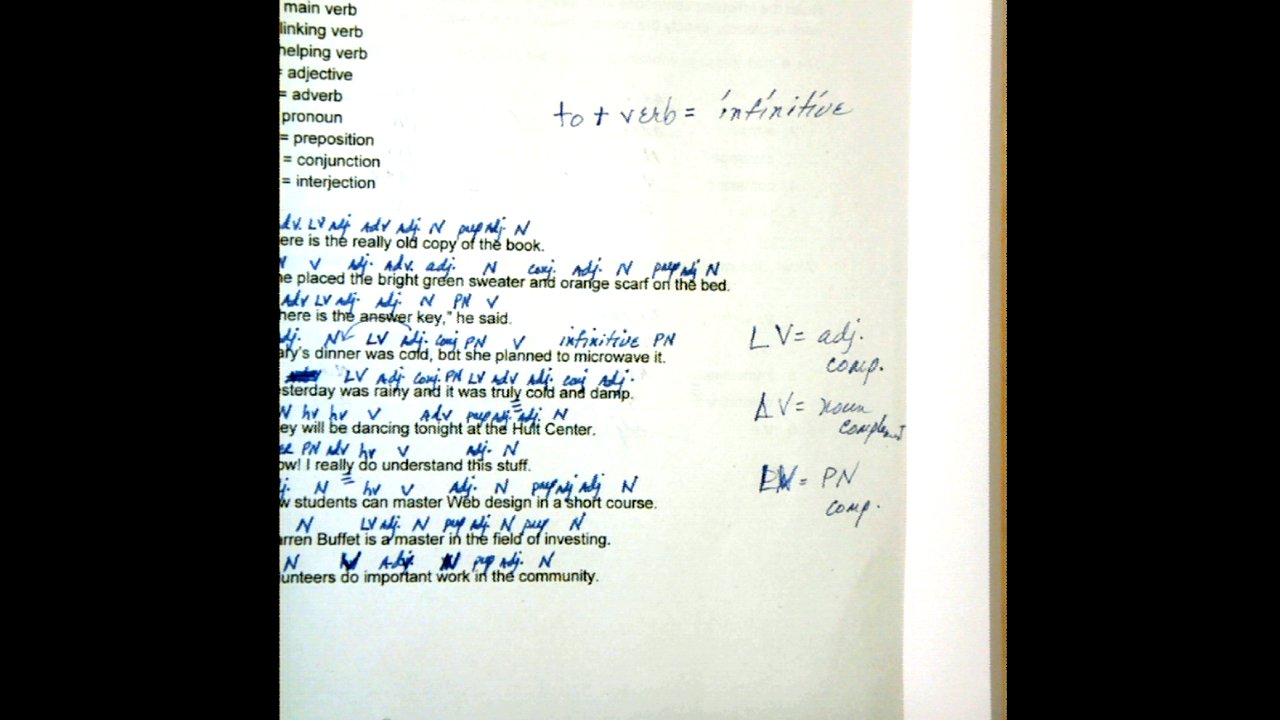 main verb
linking verb
helping verb
= adjective
= adverb
pronoun
= preposition
= conjunction
= interjection
to + verb = infinitive
adv. LV adj. adv adj. N prep adj. N
ere is the really old copy of the book.
N V adj. adv. adj. N conj. adj. N prep adj N
he placed the bright green sweater and orange scarf on the bed.
adv LV adj. adj. N PN V
here is the answer key," he said.
adj. N LV adj. conj PN V infinitive PN
ary's dinner was cold, but she planned to microwave it.
LV adj conj. PN LV adv adj. conj adj.
sterday was rainy and it was truly cold and damp.
N hv hv V adv prep adj. adj. N
ey will be dancing tonight at the Hult Center.
PN adv hv V adj. N
ow! I really do understand this stuff.
j. N hv V adj. N prep adj adj N
w students can master Web design in a short course.
N LV adj. N prep adj. N prep N
rren Buffet is a master in the field of investing.
N V adj N prep adj. N
unteers do important work in the community.
LV = adj.
comp.
LV = noun
complement
LV = PN
comp.